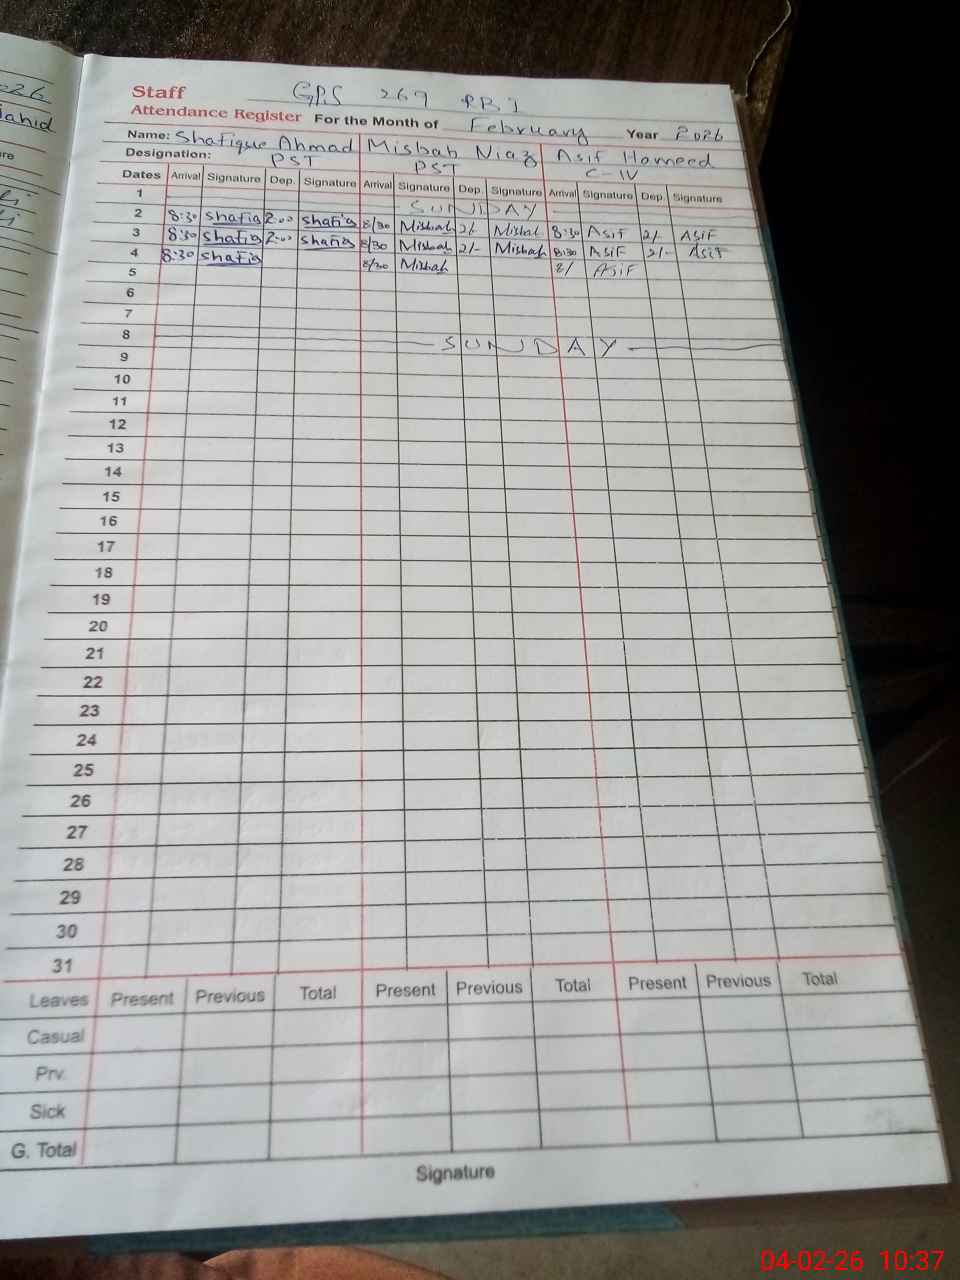 Staff GPS 269 RB I
Attendance Register For the Month of February Year 2026
Name: Shafique Ahmad Misbah Niaz Asif Hameed
Designation: PST PST C-IV
Dates Arrival Signature Dep. Signature Arrival Signature Dep. Signature Arrival Signature Dep. Signature
1 SUNDAY
2 8:30 Shafiq 2:00 Shafiq 8/30 Misbah 2/- Misbah 8:30 Asif 2/- Asif
3 8:30 Shafiq 2:00 Shafiq 8/30 Misbah 2/- Misbah 8:30 Asif 2/- Asif
4 8:30 Shafiq 8/30 Misbah 8/ Asif
5
6
7
8 SUNDAY
9
10
11
12
13
14
15
16
17
18
19
20
21
22
23
24
25
26
27
28
29
30
31
Leaves Present Previous Total Present Previous Total Present Previous Total
Casual
Prv.
Sick
G. Total
Signature
026
ahid
re
04-02-26 10:37